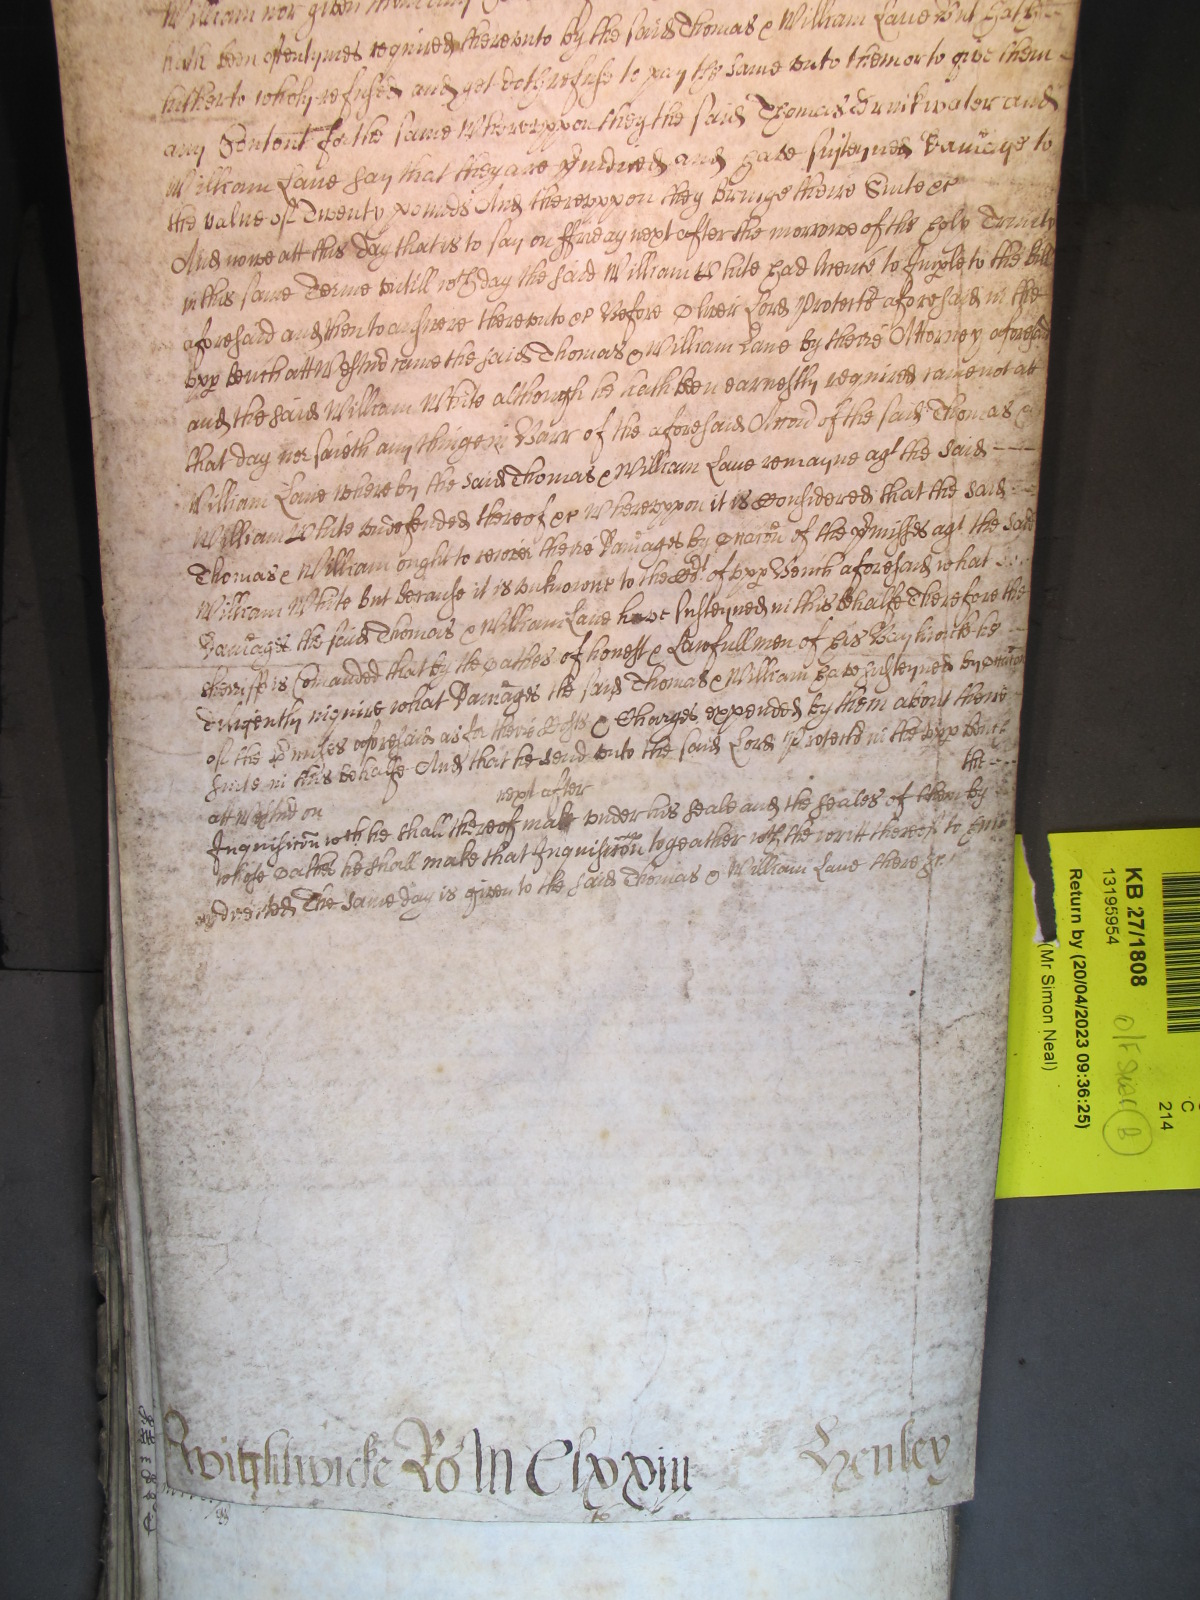 William nor given them any
hath been oftentymes required therevnto by the said Thomas & William Lane but hath
hitherto wholy refused and yet doth refuse to pay the same vnto them or to give them
any Content for the same Wherevppon they the said Thomas Drinkwater and
William Lane say that they are Iniured and have susteyned Damage to
the value of Twenty pounds And therevppon they bringe theire Suite &c
And nowe att this day that is to say on ffriday next after the morrowe of the holy Trinity
in this same Terme vntill wch day the said William White had licence to Imple to the bill
aforesaid and then to answere therevnto &c Before Oliver Lord Protector aforesaid in the
vpp bench att Westmr came the said Thomas & William Lane by theire Attorney aforesaid
and the said William White although he hath been earnestly required came not att
that day nor saieth any thinge in Barr of the aforesaid Accon of the said Thomas &
William Lane whereby the said Thomas & William Lane remayne agt the said
William White vndefended thereof &c Wherevppon it is Considered that the said
Thomas & William ought to recover theire Damages by occacon of the pmisses agt the said
William White but because it is vnknowne to the Cort of vpp Bench aforesaid what
Damages the said Thomas & William Lane have susteyned in this behalfe Therefore the
Sherriffe is Comanded that by the Oathes of honest & Lawfull men of his Baylywicke he
diligently inquire what Damages the said Thomas & William have susteyned by occacon
of the pmisses aforesaid as for theire Costs & Charges expended by them about theire
suite in this behalfe And that he send vnto the said Lord Protector in the vpp bench
att Westmr on next after the
Inquisicon wch he shall thereof make vnder his seale and the seales of them by
whose oathes he shall make that Inquisicon togeather wth the writt thereof to him
directed The same day is given to the said Thomas & William Lane there &c
Wightwicke Ro In Clxxiii Henley
KB 27/1808
13195954
Return by (20/04/2023 09:36:25)
(Mr Simon Neal)
C
214
B